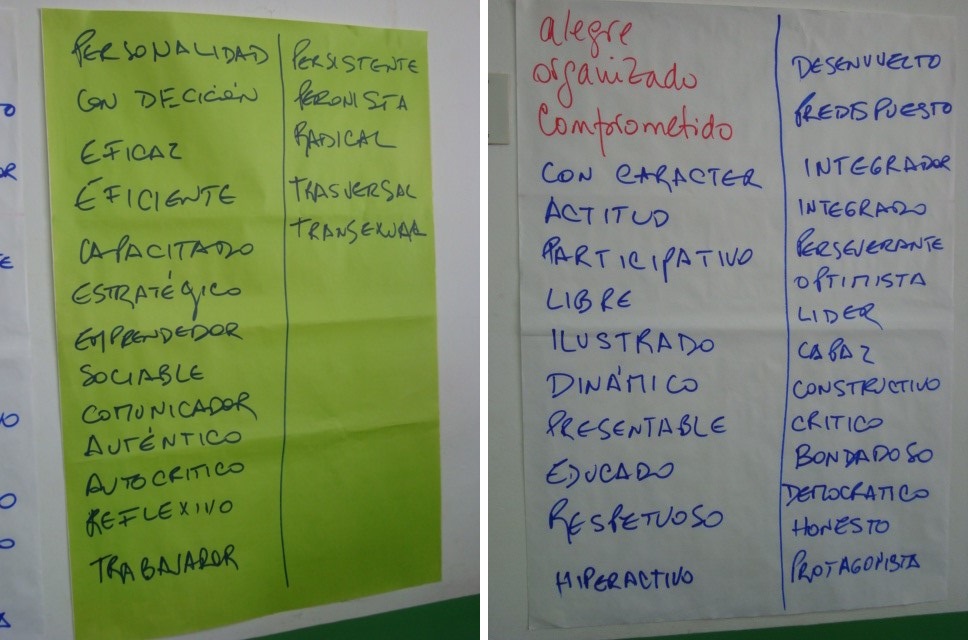 PERSONALIDAD
CON DECICIÓN
EFICAZ
EFICIENTE
CAPACITADO
ESTRATÉGICO
EMPRENDEDOR
SOCIABLE
COMUNICADOR
AUTÉNTICO
AUTOCRITICO
REFLEXIVO
TRABAJADOR
PERSISTENTE
PERONISTA
RADICAL
TRASVERSAL
TRANSEXUAL
alegre
organizado
Comprometido
CON CARACTER
ACTITUD
PARTICIPATIVO
LIBRE
ILUSTRADO
DINÁMICO
PRESENTABLE
EDUCADO
RESPETUOSO
HIPERACTIVO
DESENVUELTO
PREDISPUESTO
INTEGRADOR
INTEGRADO
PERSEVERANTE
OPTIMISTA
LIDER
CAPAZ
CONSTRUCTIVO
CRITICO
BONDADOSO
DEMOCRATICO
HONESTO
PROTAGONISTA